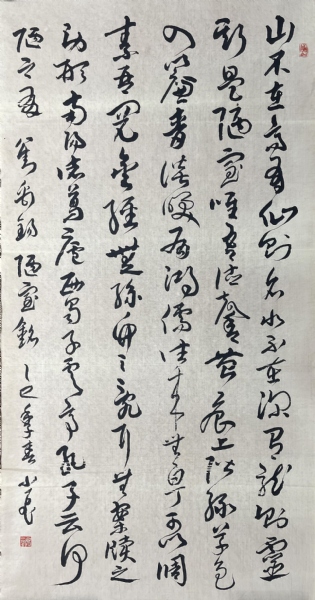 山不在高有仙則名水不在深有龍則靈
斯是陋室唯吾德馨苔痕上階綠草色
入簾青談笑有鴻儒往來無白丁可以調
素琴閱金經無絲竹之亂耳無案牘之
勞形南陽諸葛廬西蜀子雲亭孔子云何
陋之有 劉禹錫陋室銘 季春